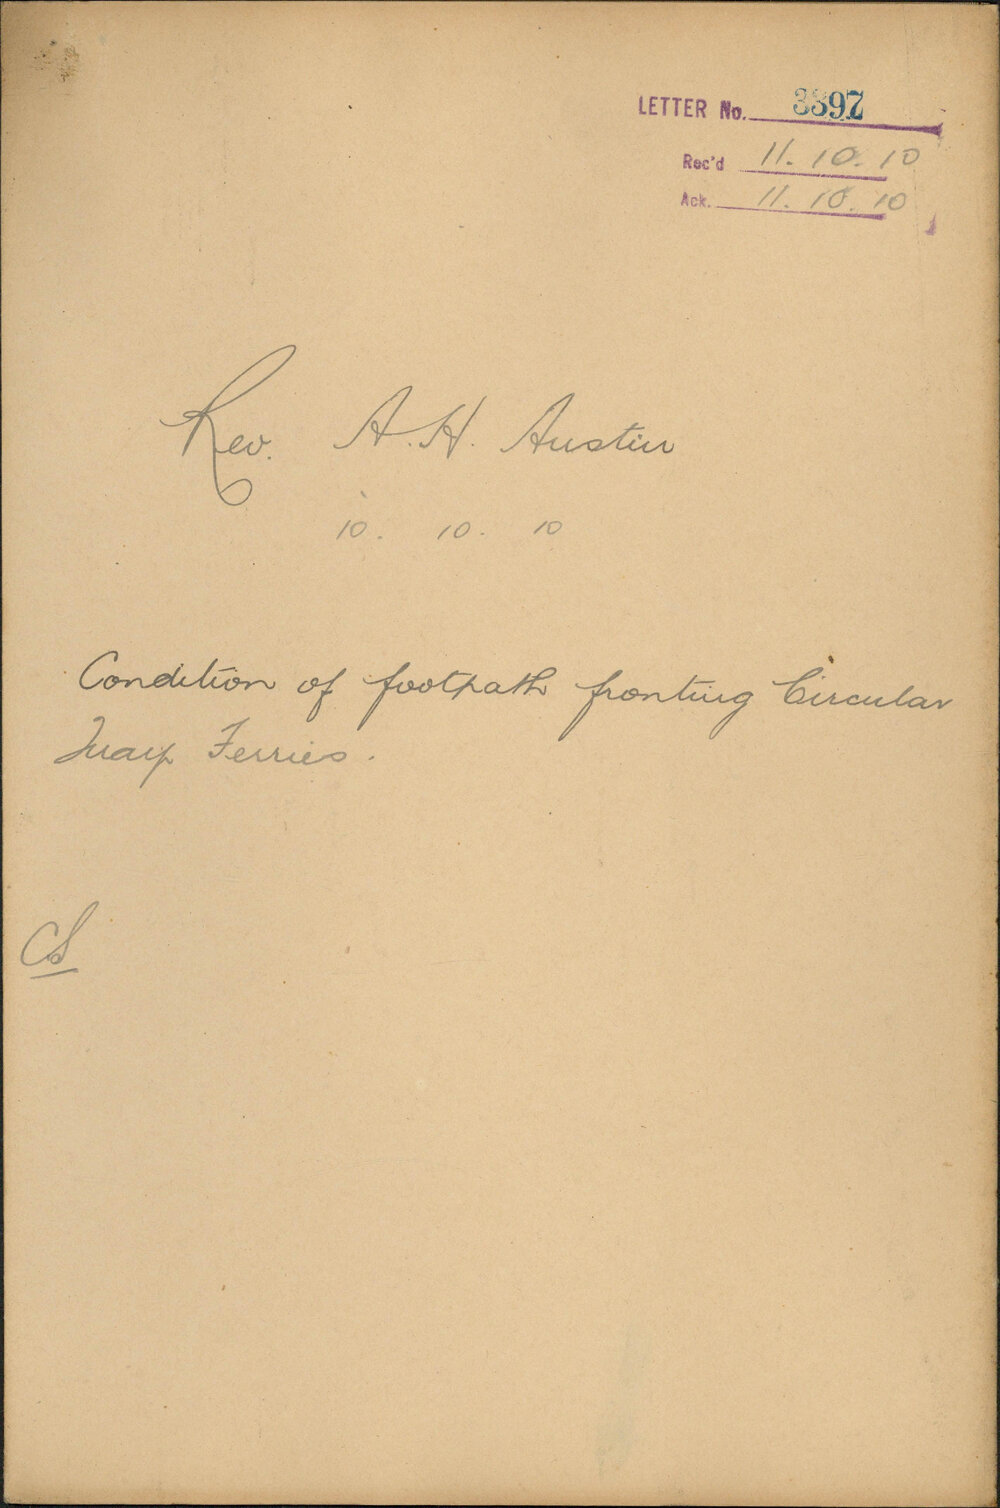 LETTER No. 3897
Rec'd 11. 10. 10
Ack. 11. 10. 10
Rev. A. H. Austin
10. 10. 10
Condition of footpath fronting Circular
Quay Ferries.
CS